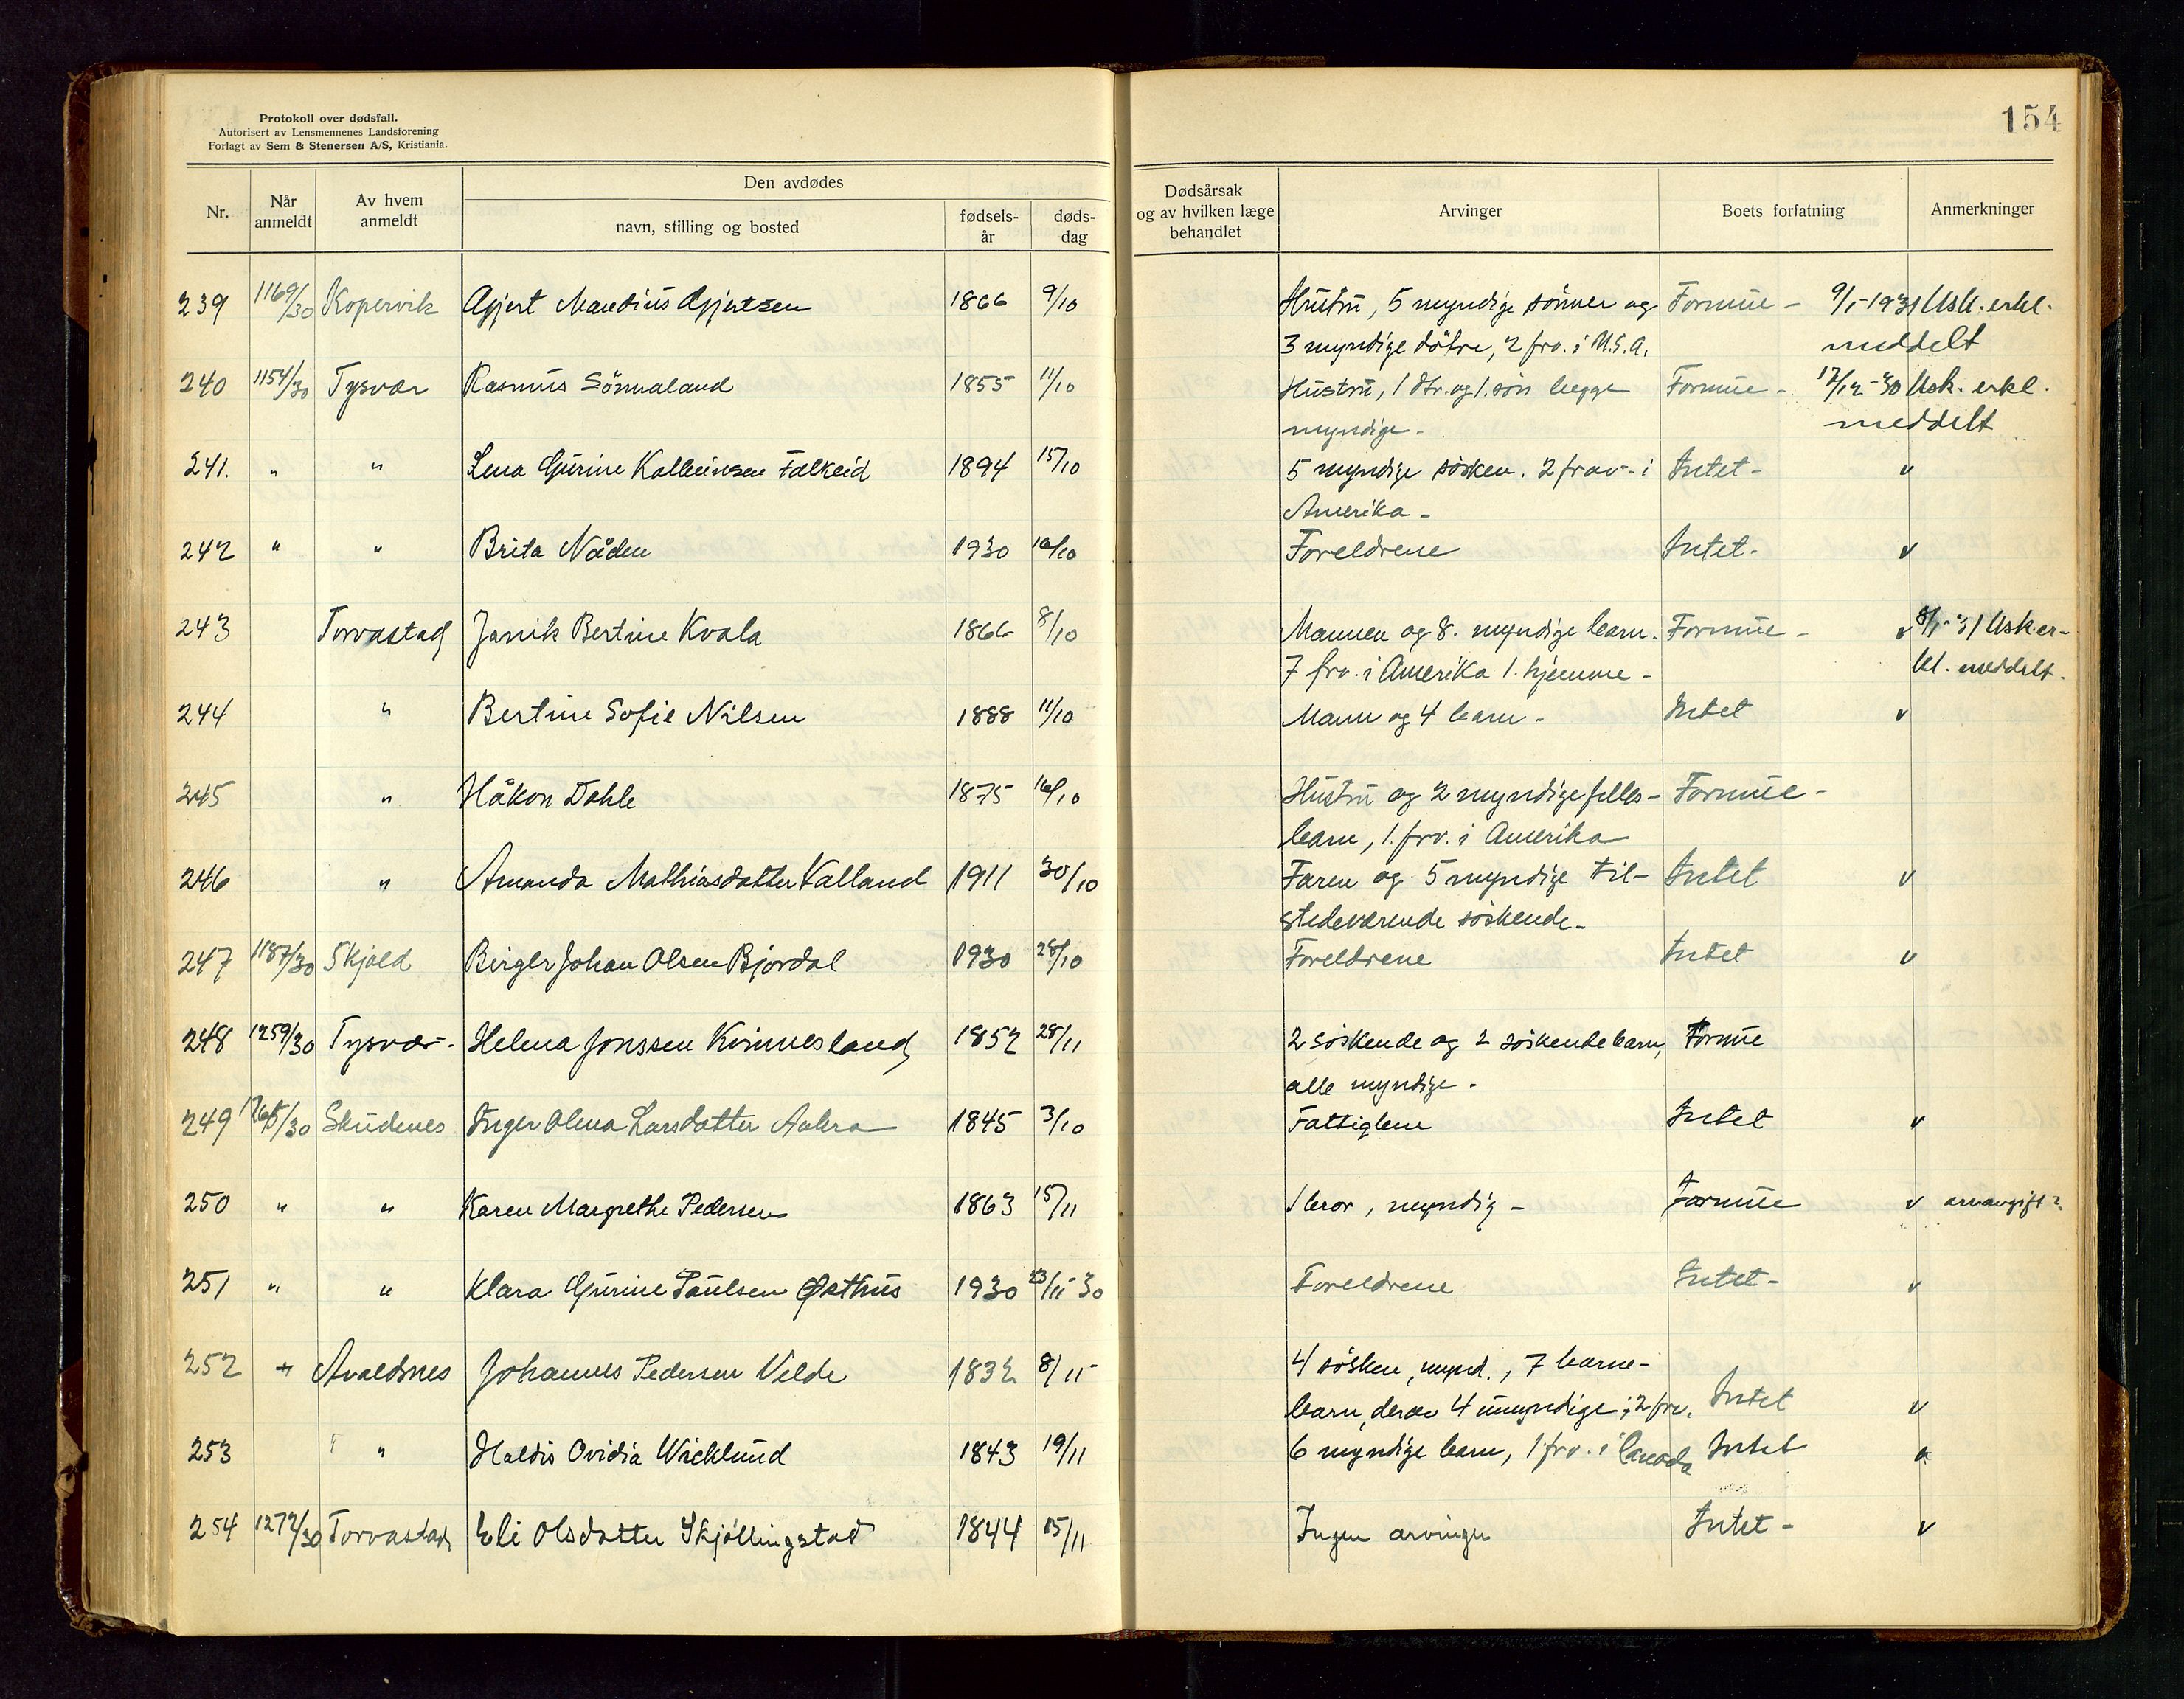 Protokoll over dødsfall.
Autorisert av Lensmennenes Landsforening
Forlagt av Sem & Stenersen A/S, Kristiania.
154
Nr.
Når anmeldt
Av hvem anmeldt
Den avdødes
navn, stilling og bosted
fødsels-år
døds-dag
Dødsårsak og av hvilken læge behandlet
Arvinger
Boets forfatning
Anmerkninger
239 1169/30 Kopervik Gjert Mandius Gjertsen 1866 9/10 Hustru, 5 myndige sønner og Formue - 9/1-1931 Usk. erkl.
3 myndige døtre, 2 frv. i U.S.A. meddelt
240 1154/30 Tysvær Rasmus Sönnaland 1855 11/10 Hustru, 1 dtr. og 1. sön begge Formue - 17/12-30 Usk. erkl.
myndige - meddelt
241. " " Lena Gurine Kalleinsen Falkeid 1894 15/10 5 myndige søsken. 2 frav- i Intet - v
Amerika -
242 " " Brita Nåden 1930 16/10 Foreldrene Intet - v
243 Torvastad Janik Bertine Kvala 1866 8/10 Mannen og 8. myndige barn. Formue - v 8/1-31 Usk.er-
7 frv. i Amerika 1. hjemme - kl. meddelt.
244 " Bertine Sofie Nilsen 1888 11/10 Mann og 4 barn - Intet v
245 " Håkon Dahle 1875 16/10 Hustru og 2 myndige felles- Formue -
barn, 1. frv. i Amerika
246 " Amanda Mathiasdatter Kalland 1911 30/10 Faren og 5 myndige til- Intet v
stedeværende søskende -
247 1187/30 Skjold Birger Johan Olsen Bjordal 1930 28/10 Foreldrene Intet v
248 1259/30 Tysvær - Helena Jonssen Kvinnesland 1852 28/11 2 søskende og 2 søskendebarn, Formue
alle myndige -
249 1265/30 Skudenes Inger Olena Larsdatter Aakra 1845 3/10 Fattiglem Intet v
250 " " Karen Margrethe Pedersen 1863 15/11 1 bror, myndig - Formue v arveavgift?
251 " " Klara Gurine Paulsen Østhus 1930 23/11-30 Foreldrene Intet - v
252 " Avaldsnes Johannes Pedersen Velde 1832 8/11 4 søsken, mynd., 7 barne-
barn, derav 4 umyndige, 2 frv. Intet v
253 " Haldis Ovidia Wicklund 1843 19/11 6 myndige barn, 1 frv. i Canada Intet v
254 1272/30 Torvastad Eli Olsdatter Skjöllingstad 1844 15/11 Ingen arvinger Intet - v